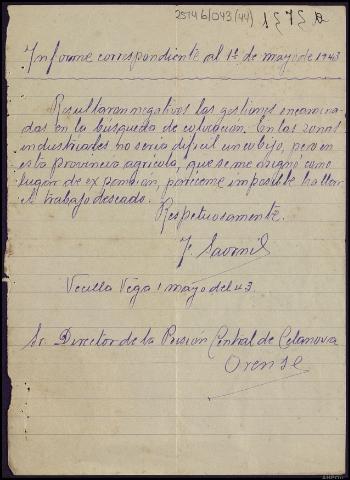 2574 6/043 (44)
Informe correspondiente al 1º de mayo de 1943
Resultaron negativos las gestiones encamina-
das en la búsqueda de colocación. En las zonas
industriales no seria dificil un cobijo, pero en
esta provincia agricola, que se me asignó como
lugar de expansión, paréceme imposible hallar
el trabajo deseado.
Respetuosamente.
F. Savonil
Vecilla Vega 1 mayo del 43.
Sr. Director de la Prisión Central de Celanova
Orense